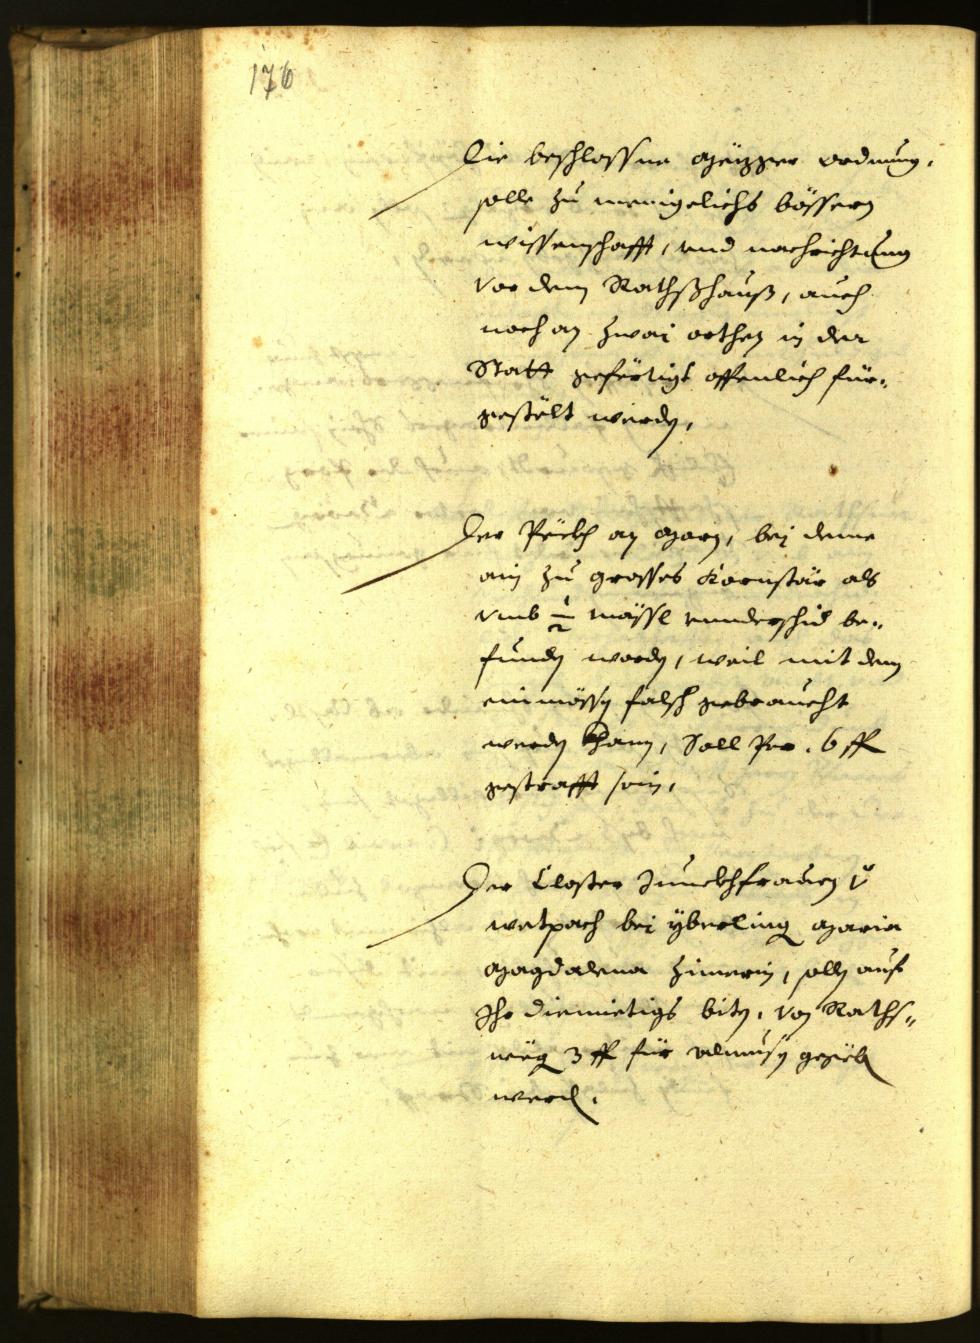 176
Die beschlossne Mezger ordnung,
solle zu menigelichs bössern
wissenschafft, und nachrichtung
vor dem Rathßhauß, auch
noch an zwai orthen in der
Statt gefertigt offenlich für-
gestölt werden,
Der Pëckh an, bei deme
ain zu grosses Kornstär als
umb 1/2 mässl underschid be-
funden worden, weil mit dem
einmössen falsch gebraucht
werden khann, Soll Per. 6 fl
gestrafft sein,
Der Closter Junckhfrauen
bei yberling Maria
Magdalena Zimerin, sollen auf
Ihr diemietigs biten, von Raths-
weg 3 fl für almusen gegeben
werden.